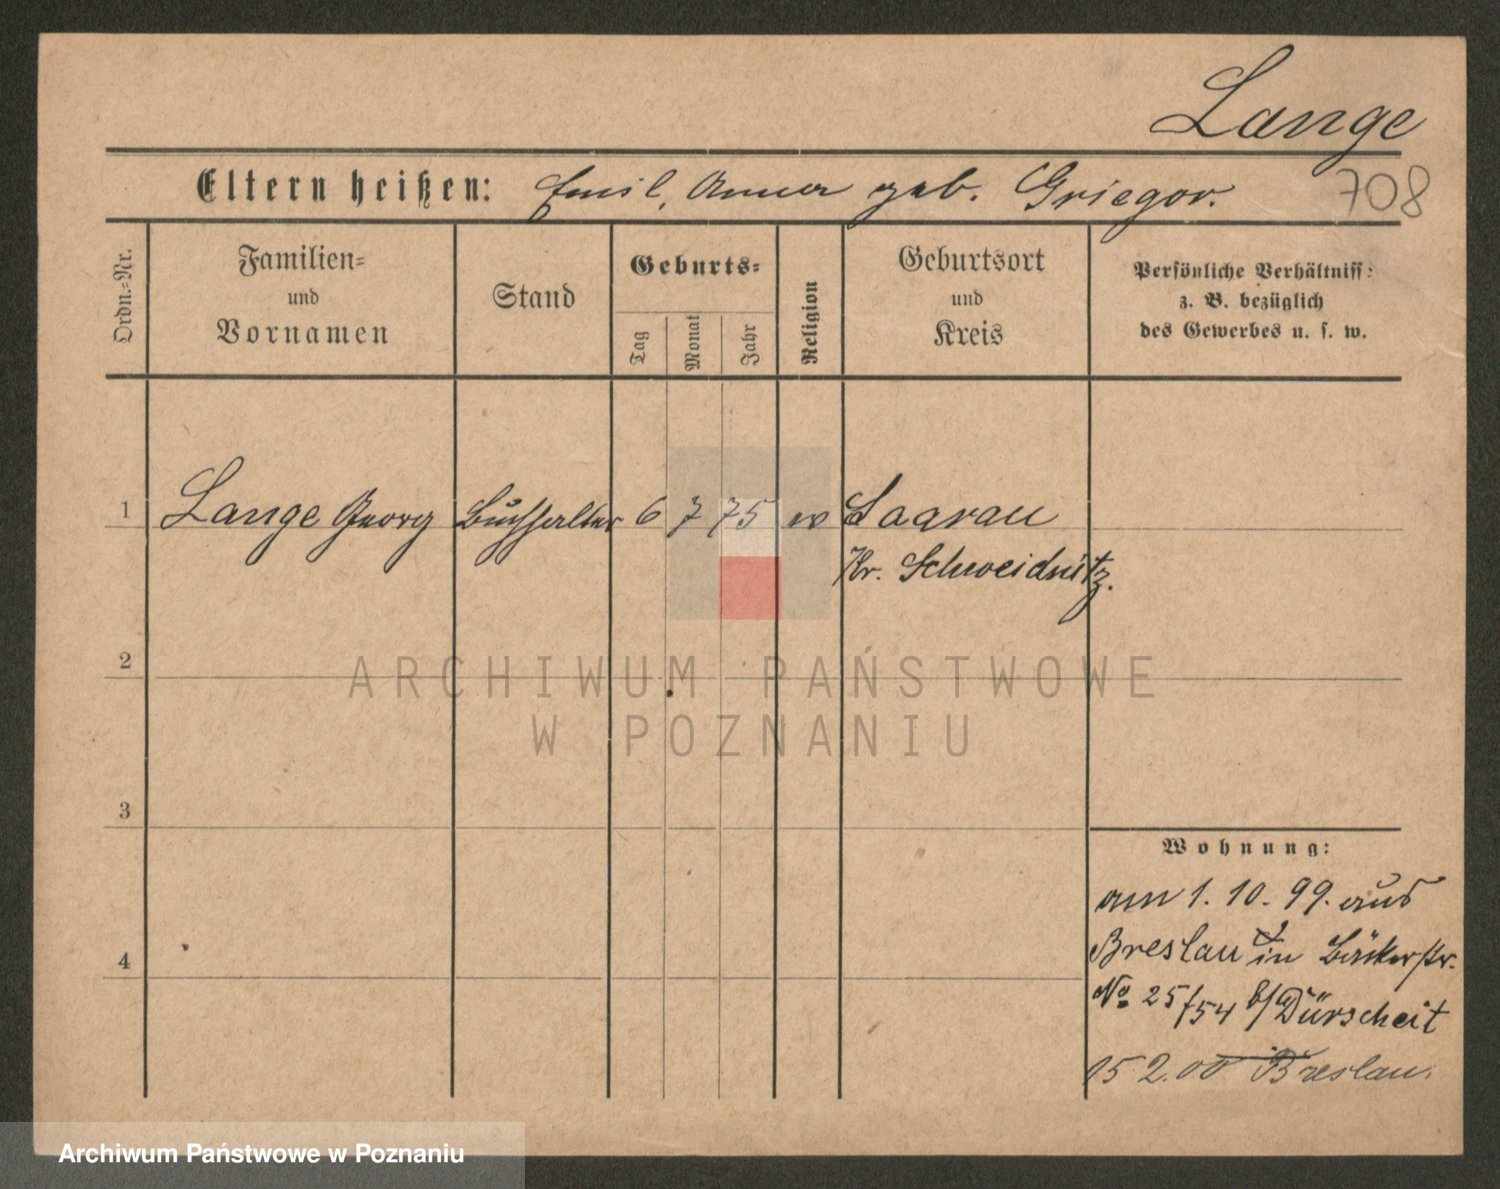 Lange
Eltern heißen: Emil, Anna geb. Griegor.
708
Ordn.=Nr.
Familien=
und
Vornamen
Stand
Geburts=
Tag
Monat
Jahr
Religion
Geburtsort
und
Kreis
Persönliche Verhältniss:
z. B. bezüglich
des Gewerbes u. s. w.
1 Lange Georg Buchhalter 6 7 75 ev Saarau
Kr. Schweidnitz.
2
ARCHIWUM PAŃSTWOWE
W POZNANIU
3
4
Wohnung:
am 1. 10. 99. aus
Breslau in Bäckerstr.
No 25/54 b/Dürscheit
15 2. 00 Breslau.
Archiwum Państwowe w Poznaniu